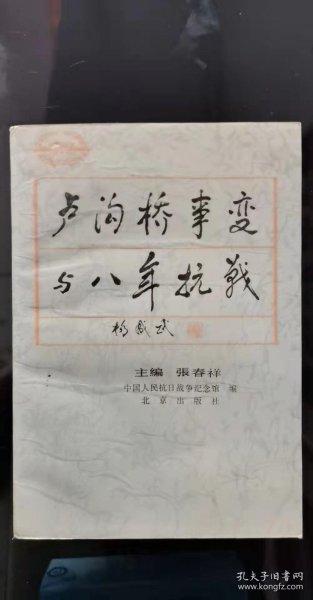 卢沟桥事变
与八年抗战
杨成武
主编 張春祥
中国人民抗日战争纪念馆 编
北京出版社
孔夫子旧书网
www.kongfz.com